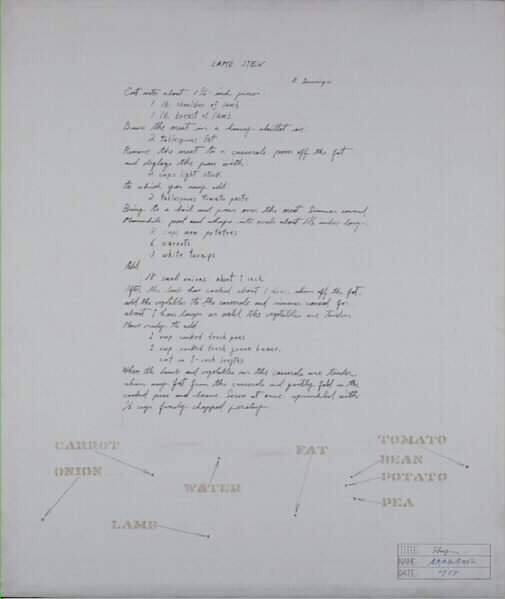 LAMB STEW
Cut into about 1½ inch pieces
1 lb. shoulder of lamb
1 lb. breast of lamb
Brown the meat in a heavy skillet in
2 tablespoons fat
Remove the meat to a casserole pour off the fat
and deglaze the pan with
2 cups light stock
to which you may add
2 tablespoons tomato paste
Bring to a boil and pour over the meat. Simmer covered
Meanwhile peel and shape into ovals about 1½ inches long
cups new potatoes
6 carrots
3 white turnips
Add
18 small onions about 1 inch
After the lamb has cooked about 1 hour, skim off the fat,
add the vegetables to the casserole and simmer covered for
about 1 hour longer or until the vegetables are tender
Have ready to add
1 cup cooked fresh peas
1 cup cooked fresh green beans,
cut in 1-inch lengths
When the lamb and vegetables in the casserole are tender,
skim any fat from the casserole and gently fold in the
cooked peas and beans. Serve at once, sprinkled with
cup finely chopped parsley
CARROT
ONION
WATER
LAMB
FAT
TOMATO
BEAN
POTATO
PEA
TITLE:
NAME:
DATE: